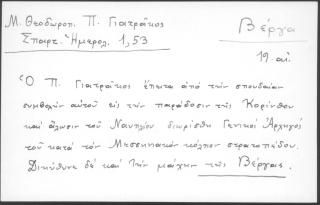 Μ. Θεοδωροπ. Π. Γιατράκος
Σπαρτ. Ἡμερολ. 1,53
Βέργα
19 αἰ.
Ὁ Π. Γιατράκος ἔπειτα ἀπό τήν σπουδαίαν
συμβολήν αὐτοῦ εἰς τήν παράδοσιν τῆς Κορίνθου
καί ἅλωσιν τοῦ Ναυπλίου διωρίσθη Γενικός Ἀρχηγός
τοῦ κατά τόν Μεσσηνιακόν κόλπον στρατοπέδου.
Διηύθυνε δέ καί τήν μάχην τῆς Βέργας.